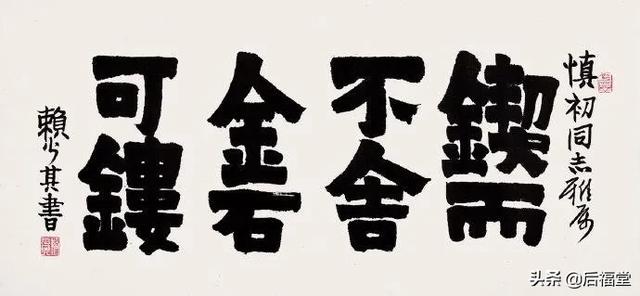 慎初同志雅属
鍥而
不舍
金石
可鏤
賴少其書
头条 @后福堂